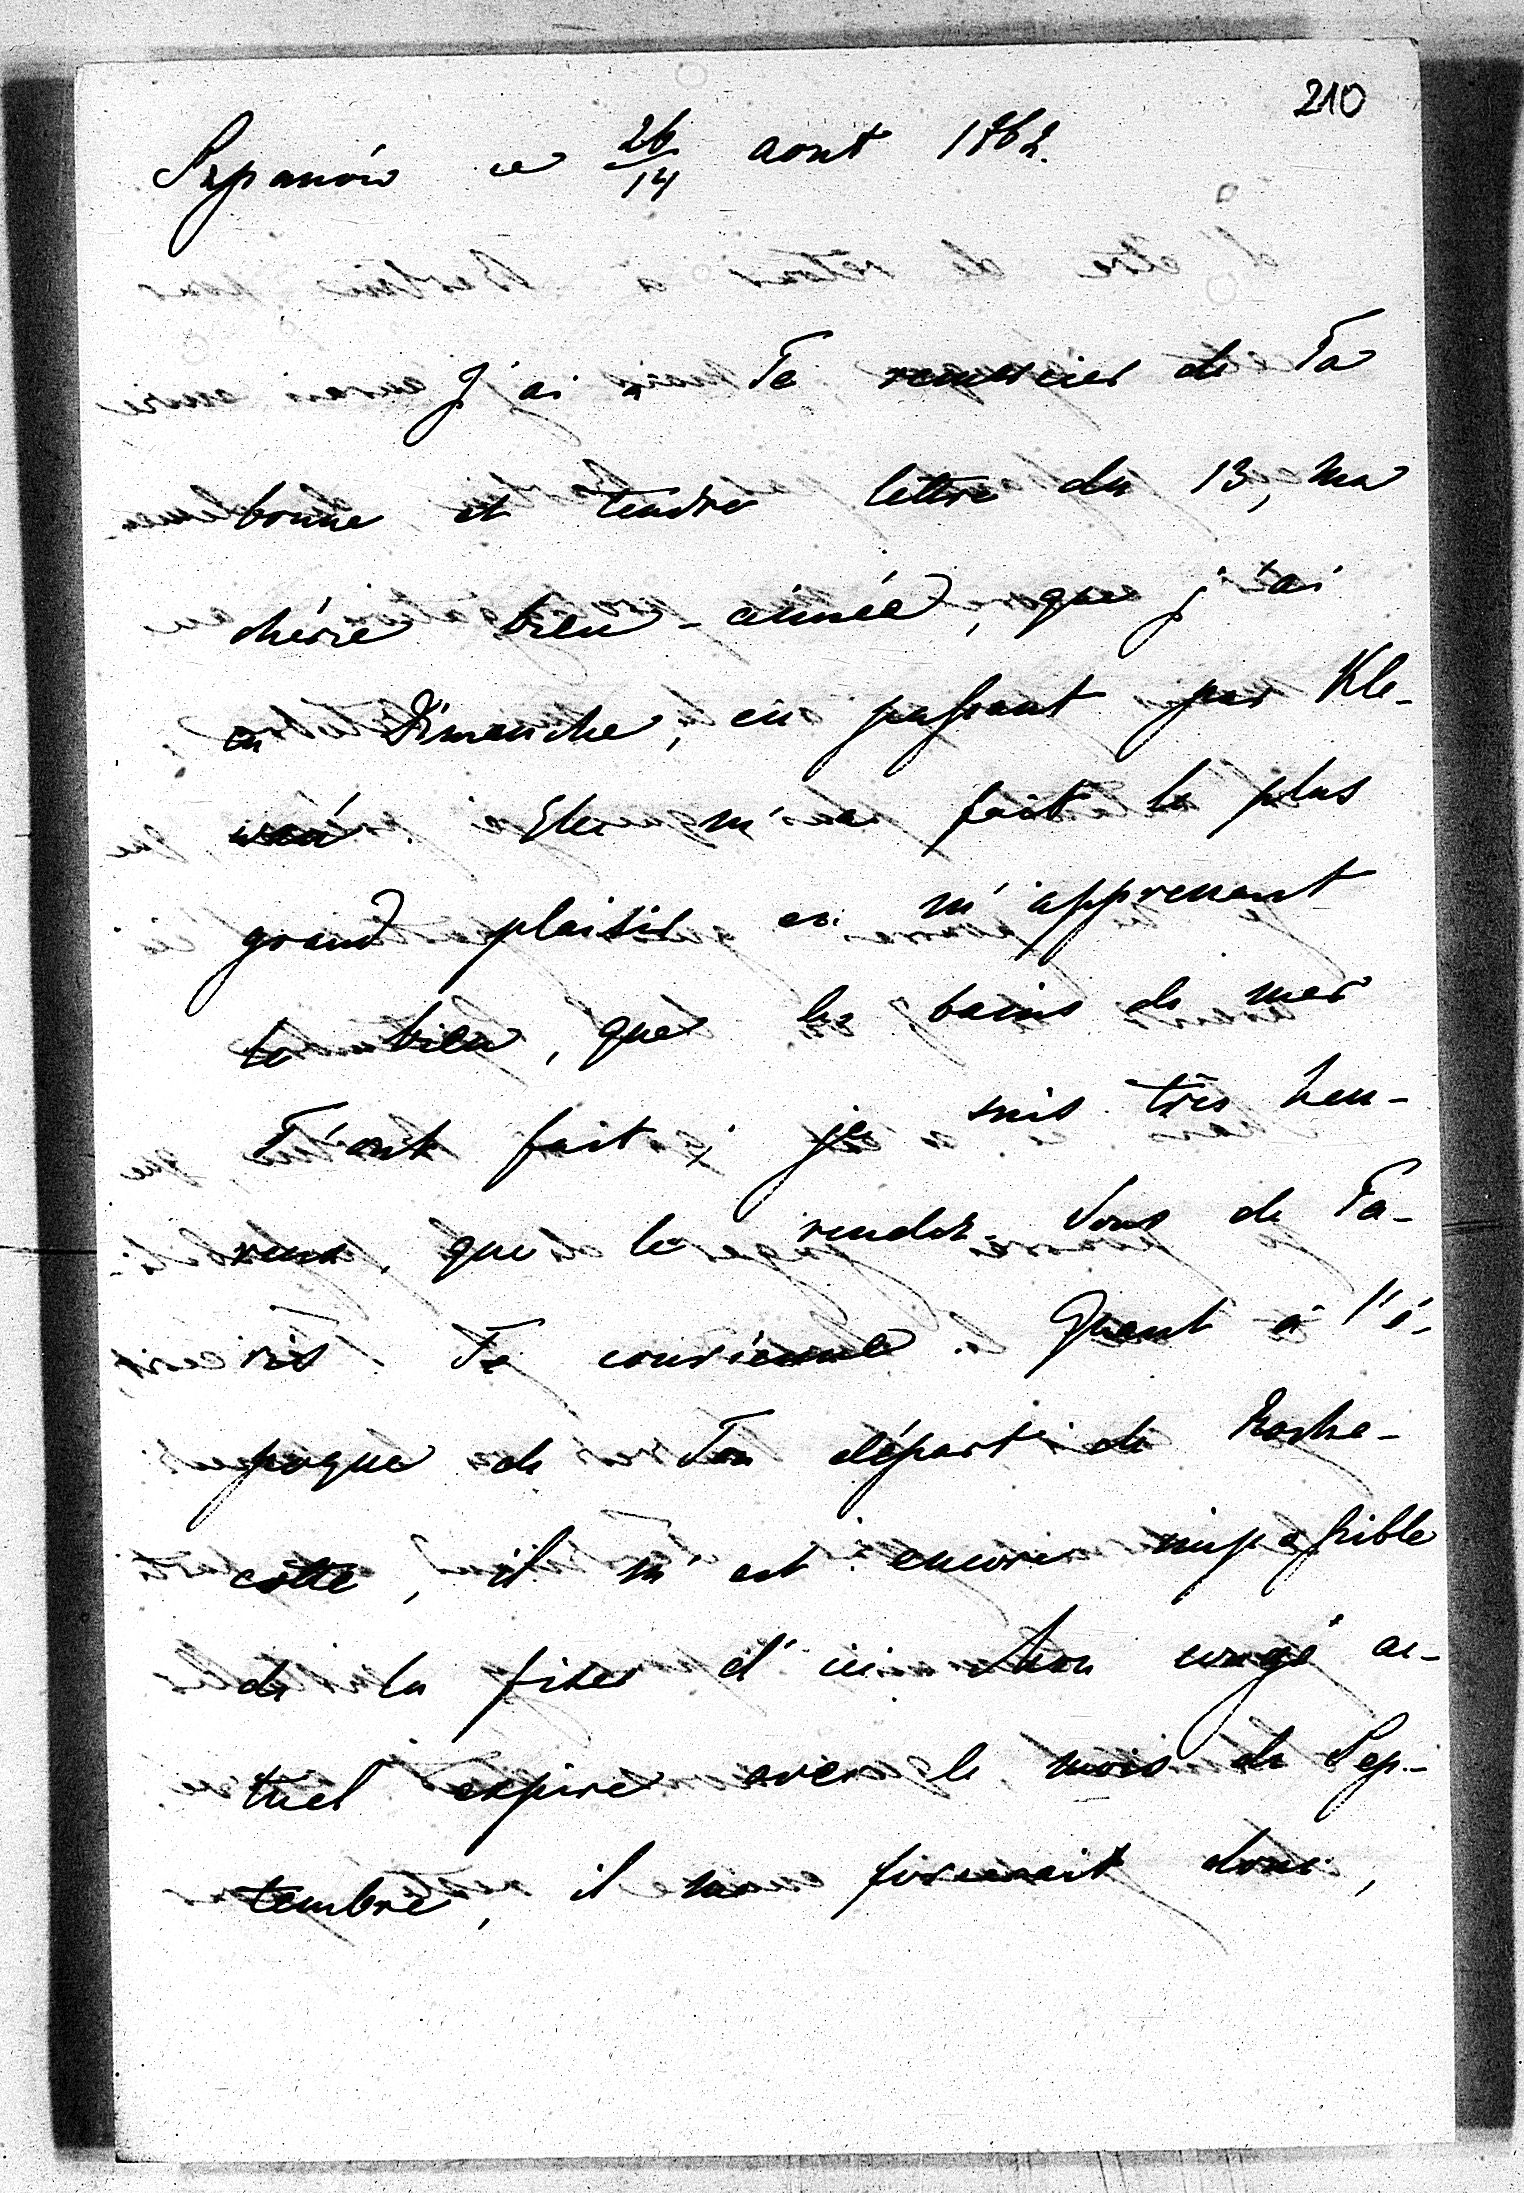 210
Szpanów ce 26/14 aout 1862.
J'ai à Te remercier de Ta
bonne et tendre lettre du 13, ma
chérie bien-aimée, que j'ai
eu Dimanche, en passant par Kle-
wań. Elle m'a fait le plus
grand plaisir en m'apprenant
le bien, que les bains de mer
T'ont fait; je suis très heu-
reux que le rendez-vous de Pa-
ris Te convienne. Quant à l'é-
poque de Ton départ de Roche-
cotte, il m'est encore impossible
de la fixer d'ici. Mon congé ac-
tuel expire avec le mois de Sep-
tembre, il me forcerait donc,